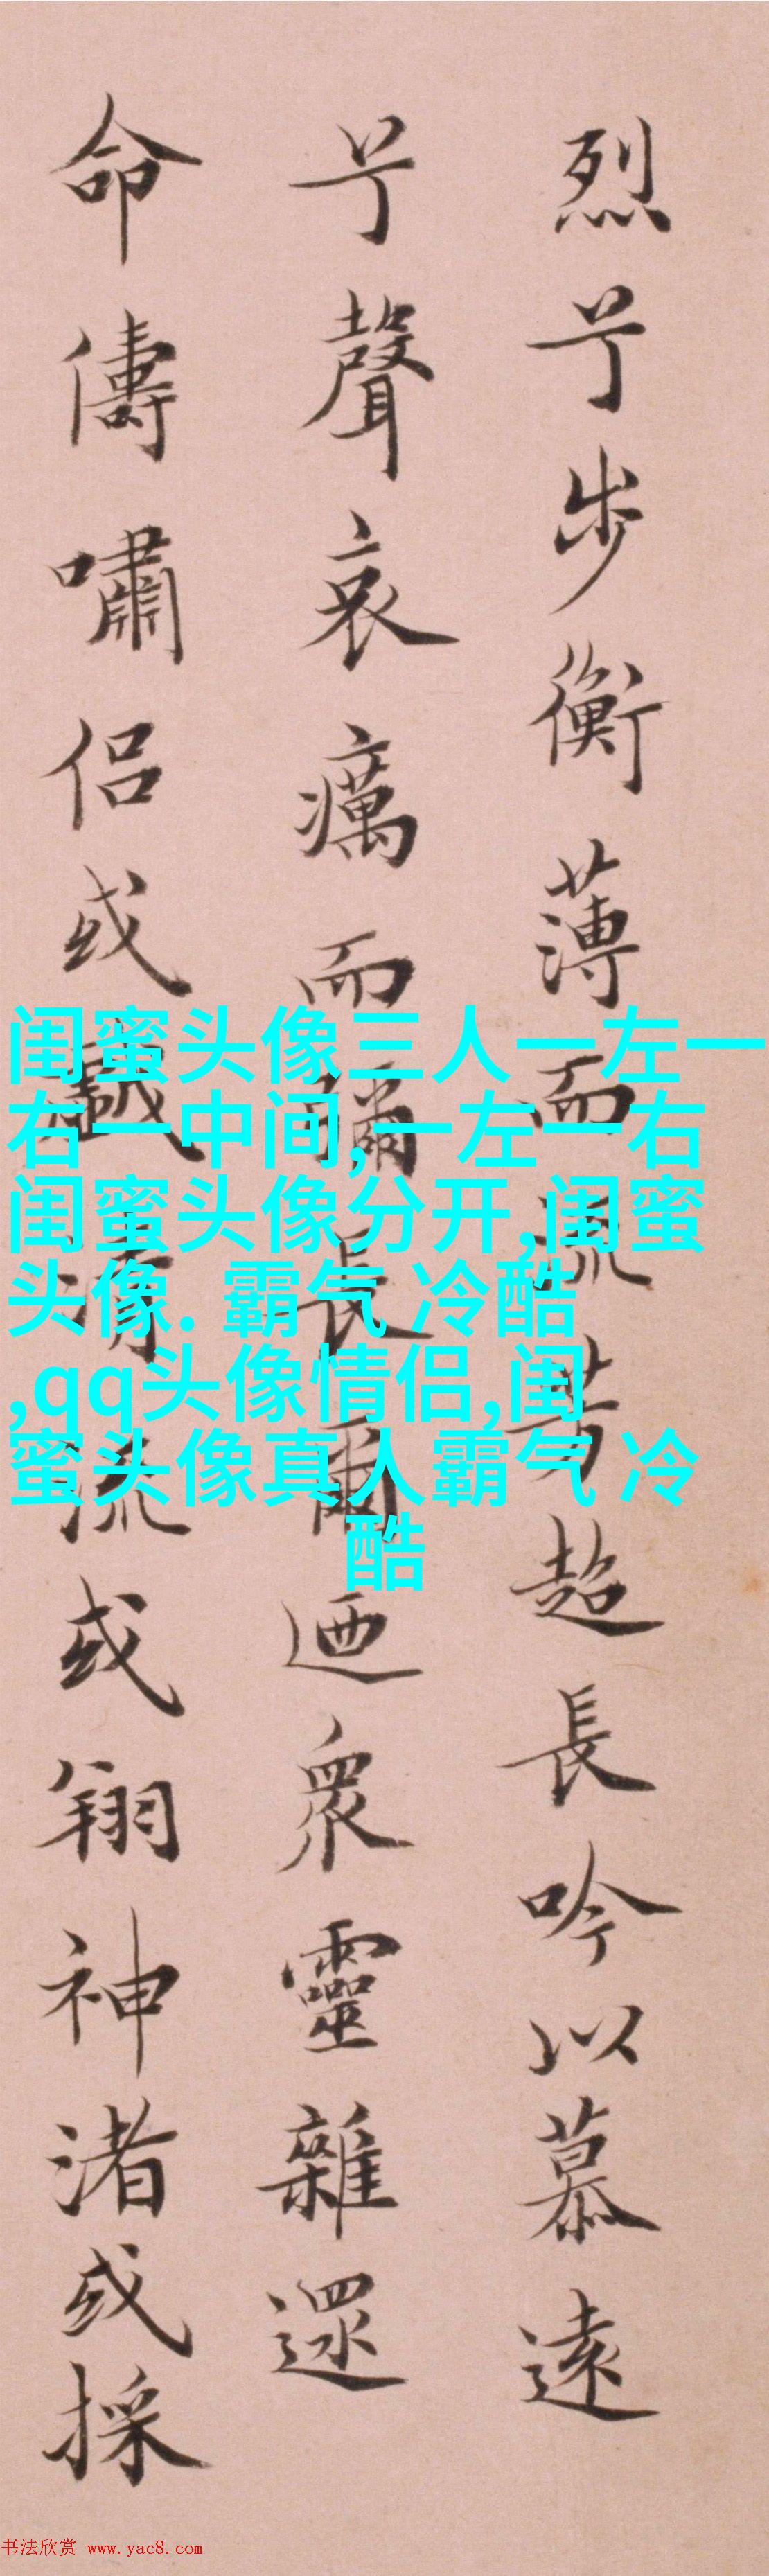 烈兮步衡薄而流芳超長吟以慕遠
兮聲哀癘而彌長爾迺衆靈雜遝
命儔嘯侣或戲清流或翔神渚或採
闺蜜头像三人一左一
右一中间,一左一右
闺蜜头像分开,闺蜜
头像. 霸气 冷酷
,qq头像情侣,闺
蜜头像真人霸气 冷
酷
书法欣赏 www.yac8.com